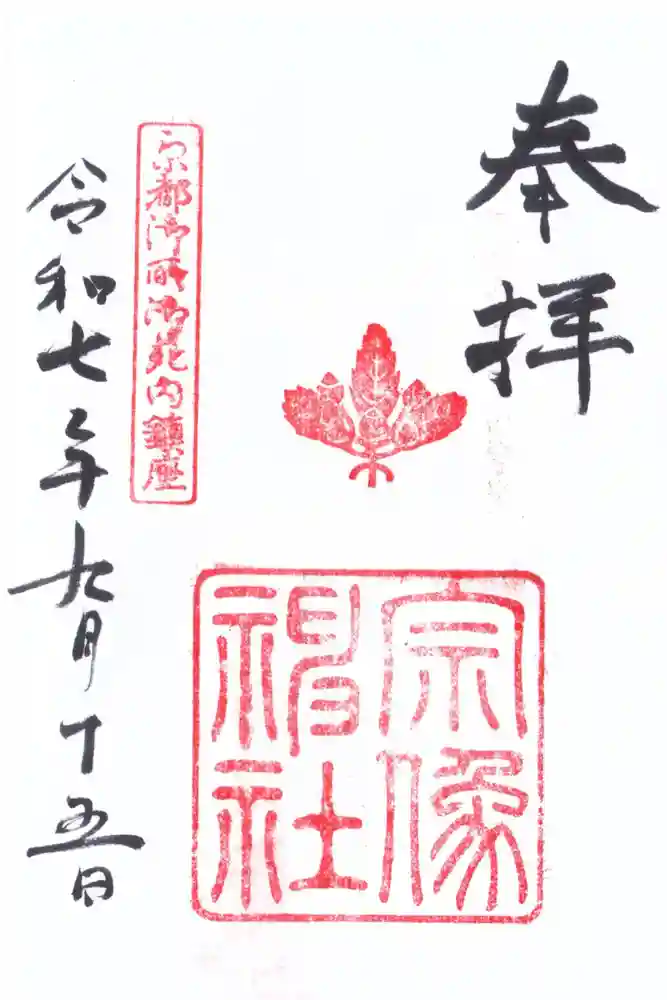 奉拝
宗像
神社
京都御所御苑内鎮座
令和七年九月十五日